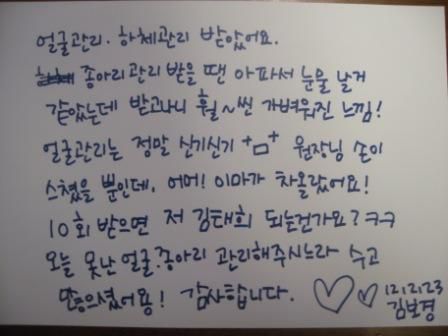 얼굴관리. 하체관리 받았어요.
종아리관리 받을 땐 아파서 눈물 날거
같았는데 받고나니 훨~씬 가벼워진 느낌!
얼굴관리는 정말 신기신기 +ㅁ+ 원장님 손이
스쳤을 뿐인데, 어머! 이마가 차올랐어요!
10회 받으면 저 김태희 되는건가요? ㅋㅋ
오늘 못난 얼굴.종아리 관리해주시느라 수고
많으셨어용! 감사합니다. ♡♡ 121223
김보경